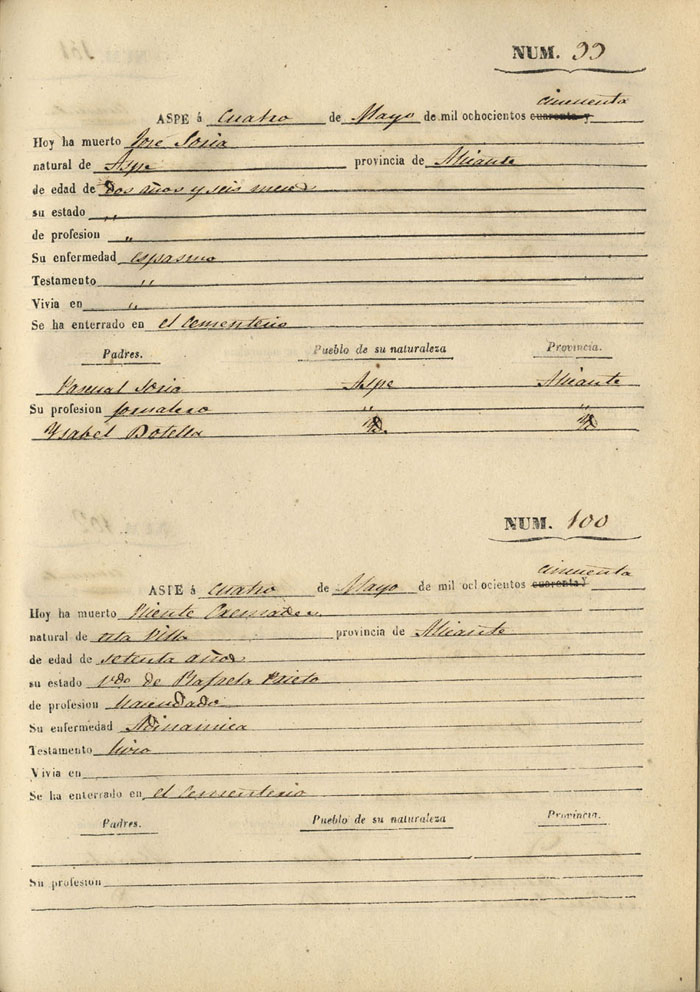 NUM. 99
cincuenta
ASPE á Cuatro de Mayo de mil ochocientos cuarenta y
Hoy ha muerto José Soria
natural de Aspe provincia de Alicante
de edad de dos años y seis meses
su estado „
de profesion „
Su enfermedad espasmo
Testamento „
Vivia en „
Se ha enterrado en el cementerio
Padres. Pueblo de su naturaleza Provincia.
Pascual Soria Aspe Alicante
Su profesion jornalero „ „
Ysabel Botella Yd. Yd.
NUM. 100
cincuenta
ASPE á Cuatro de Mayo de mil ochocientos cuarenta y
Hoy ha muerto Vicente Cremades
natural de esta Villa provincia de Alicante
de edad de setenta años
su estado vdo de Rafaela Prieto
de profesion hacendado
Su enfermedad Adinamica
Testamento hizo
Vivia en
Se ha enterrado en el cementerio
Padres. Pueblo de su naturaleza Provincia.
Su profesion